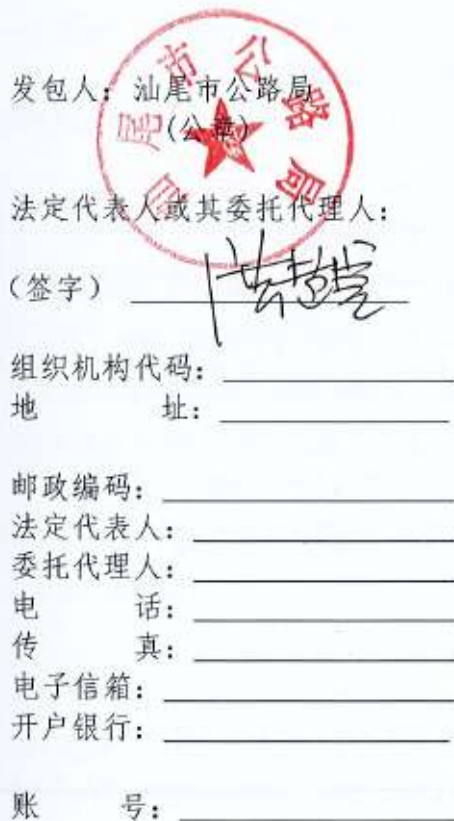 发包人：汕尾市公路局
（公章）
汕尾市公路局
法定代表人或其委托代理人：
（签字）
组织机构代码：
地 址：
邮政编码：
法定代表人：
委托代理人：
电 话：
传 真：
电子信箱：
开户银行：
账 号：